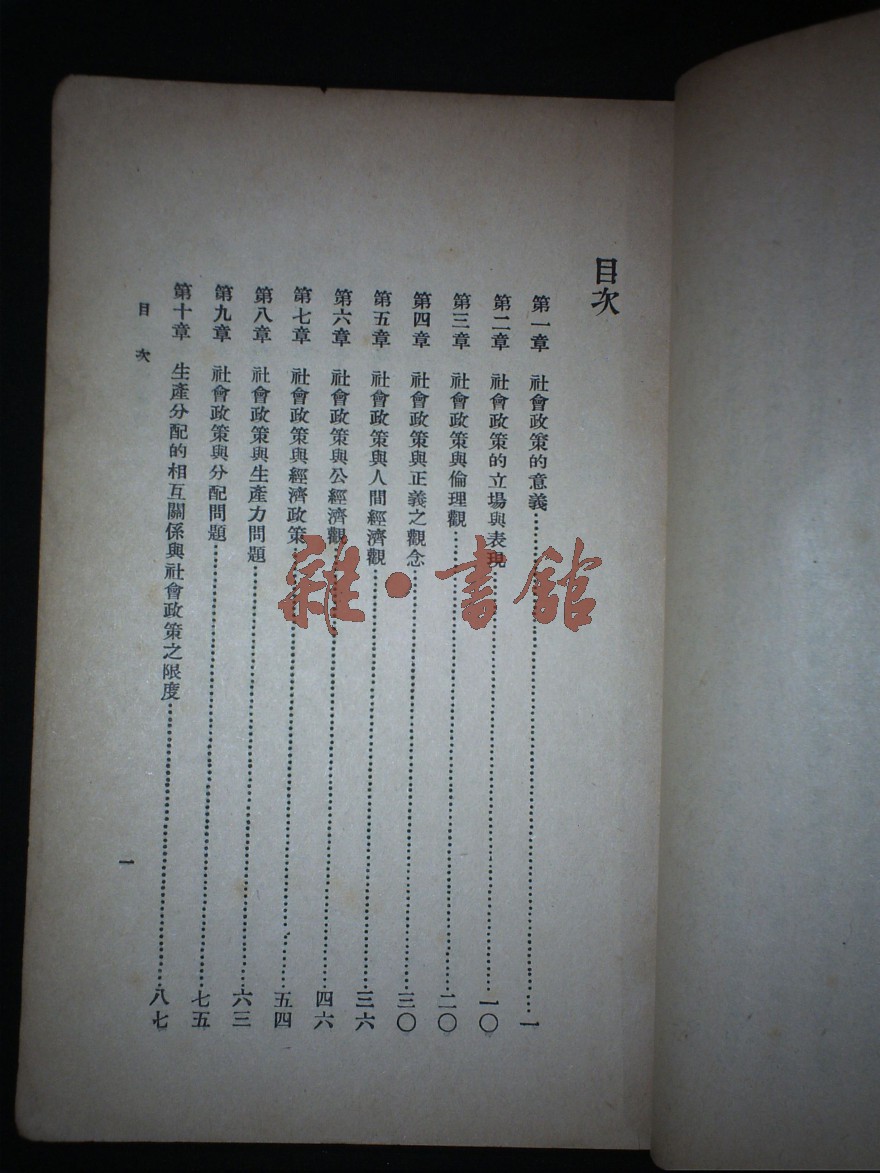 目次
第一章 社會政策的意義…………一
第二章 社會政策的立場與表現…………一〇
第三章 社會政策與倫理觀…………二〇
第四章 社會政策與正義之觀念…………三〇
第五章 社會政策與人間經濟觀…………三六
第六章 社會政策與公經濟觀…………四六
第七章 社會政策與經濟政策…………五四
第八章 社會政策與生產力問題…………六三
第九章 社會政策與分配問題…………七五
第十章 生產分配的相互關係與社會政策之限度…………八七
目次
一
雜·書館